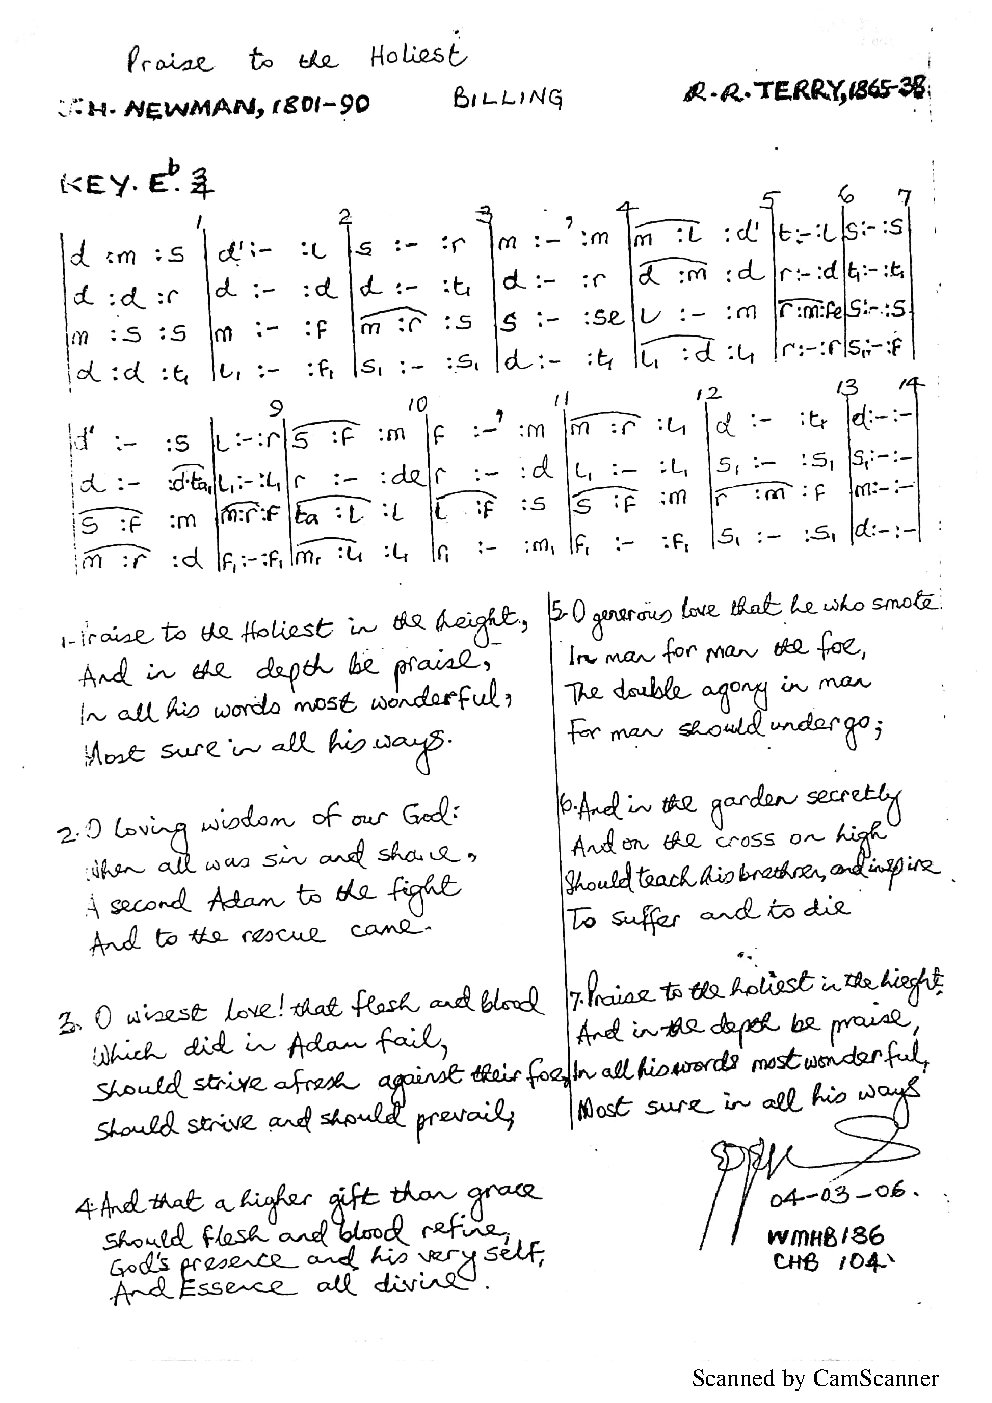 Praise to the Holiest
J.H. NEWMAN, 1801-90 BILLING R.R. TERRY, 1865-38
KEY. Eb. 3/4
1 2 3 4 5 6 7
d :m :s | d' :- :l | s :- :r | m :-' :m | m :l :d' | t:-:l | s:-:s
d :d :r | d :- :d | d :- :t₁ | d :- :r | d :m :d | r:-:d | t₁:-:t₁
m :s :s | m :- :f | m :r :s | s :- :se | l :- :m | r:m:fe | s:-:s
d :d :t₁ | l₁ :- :f₁ | s₁ :- :s₁ | d :- :t₁ | l₁ :d :l₁ | r:-:r | s₁:-:f
9 10 11 12 13 14
d' :- :s | l:-:r | s :f :m | f :-' :m | m :r :l₁ | d :- :t₁ | d:-:-
d :- :d.ta₁ | l₁:-:l₁ | r :- :de | r :- :d | l₁ :- :l₁ | s₁ :- :s₁ | s₁:-:-
s :f :m | m:r:f | ta :l :l | l :f :s | s :f :m | r :m :f | m:-:-
m :r :d | f₁:-:f₁ | m₁ :l₁ :l₁ | r₁ :- :m₁ | f₁ :- :f₁ | s₁ :- :s₁ | d:-:-
1- Praise to the Holiest in the height,
And in the depth be praise,
In all his words most wonderful,
Most sure in all his ways.
2. O loving wisdom of our God:
When all was sin and shame,
A second Adam to the fight
And to the rescue came.
3. O wisest love! that flesh and blood
Which did in Adam fail,
Should strive afresh against their foe,
Should strive and should prevail;
4 And that a higher gift than grace
Should flesh and blood refine,
God's presence and his very self,
And Essence all divine.
5. O generous love that he who smote
In man for man the foe,
The double agony in man
For man should undergo;
6. And in the garden secretly
And on the cross on high
Should teach his brethren, and inspire
To suffer and to die
7. Praise to the holiest in the hieght,
And in the depth be praise,
In all his words most wonderful,
Most sure in all his ways
04-03-06.
WMHB 186
CHB 104.
Scanned by CamScanner